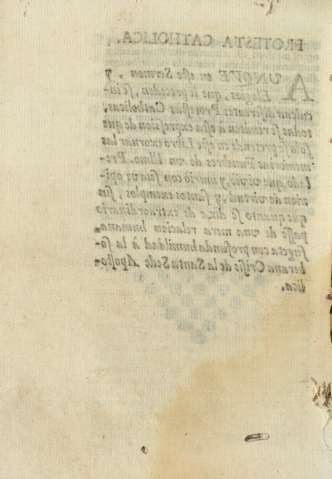 PROTESTA CATHOLICA.
AUNQVE en este Sermon, y
Elogios, que le preceden, se in-
cluyen diferentes Protestas Catholicas,
todas se reducen à esta expression de que
solo se pretende en este Libro exornar las
memorias Funebres de un Illmo. Pre-
lado, que viviò, y muriò con suave opi-
nion de virtud, y santos exemplos, sin
que quanto se dize de extraordinario
passe de una mera relacion humana,
sugeta con profunda humildad à la so-
berana Crisis de la Santa Sede Aposto-
lica.